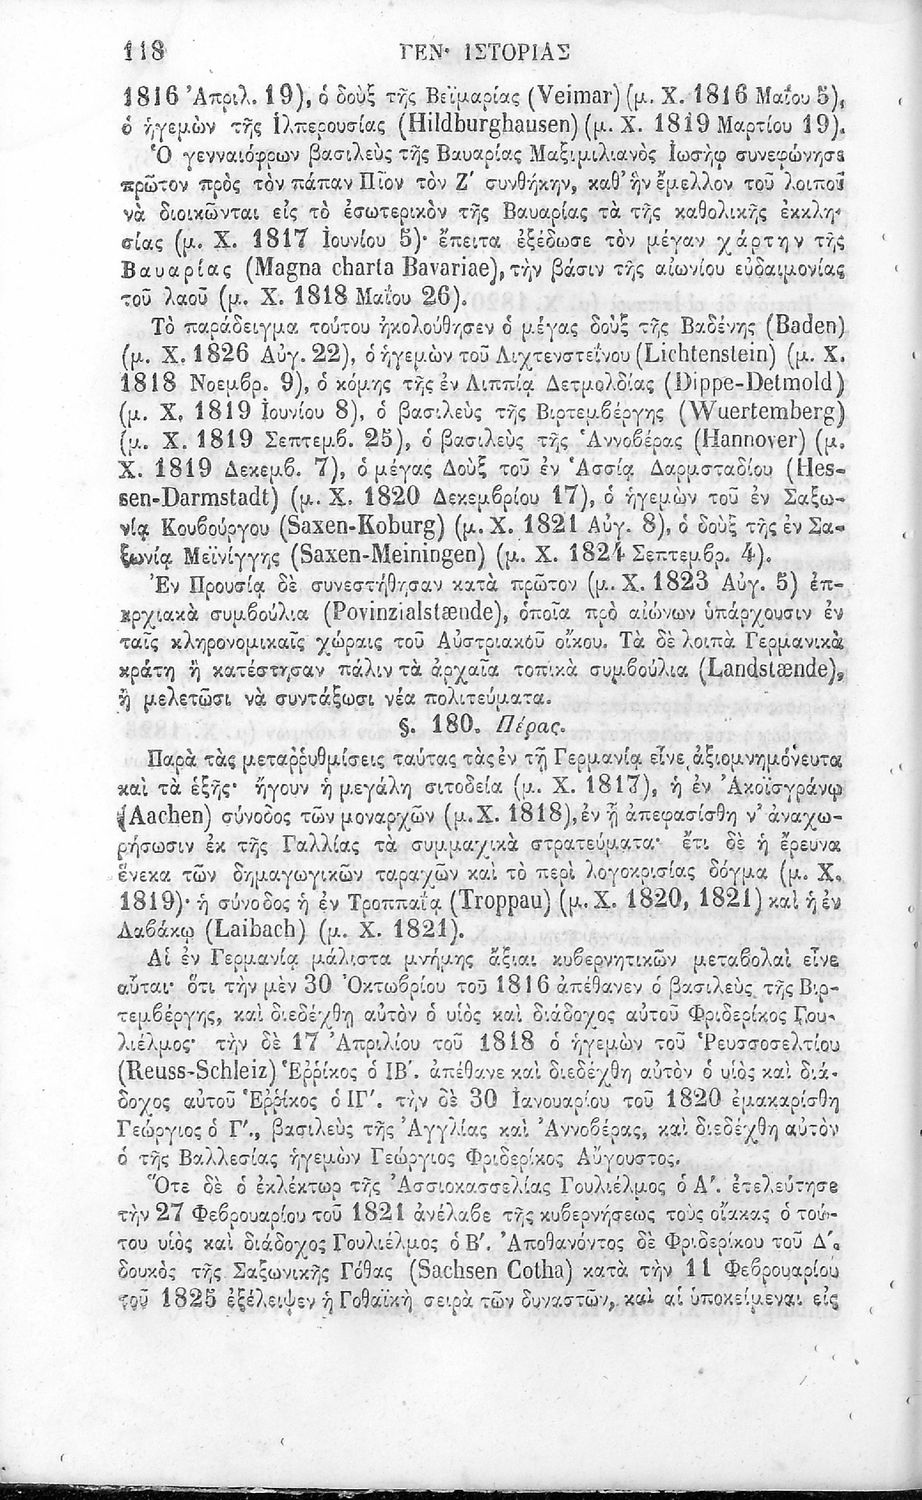 118 ΓΕΝ· ΙΣΤΟΡΙΑΣ
1816 Ἀπριλ. 19), ὁ δοὺξ τῆς Βεϊμαρίας (Veimar) (μ. Χ. 1816 Μαΐου 5),
ὁ ἡγεμὼν τῆς Ἱλπερουσίας (Hildburghausen) (μ. Χ. 1819 Μαρτίου 19).
Ὁ γενναιόφρων βασιλεὺς τῆς Βαυαρίας Μαξιμιλιανὸς Ἰωσὴφ συνεφώνησε
πρῶτον πρὸς τὸν πάπαν Πῖον τὸν Ζ΄ συνθήκην, καθ' ἣν ἔμελλον τοῦ λοιποῦ
νὰ διοικῶνται εἰς τὸ ἐσωτερικὸν τῆς Βαυαρίας τὰ τῆς καθολικῆς ἐκκλη-
σίας (μ. Χ. 1817 Ἰουνίου 5)· ἔπειτα ἐξέδωσε τὸν μέγαν χάρτην τῆς
Βαυαρίας (Magna charta Bavariae), τὴν βάσιν τῆς αἰωνίου εὐδαιμονίας
τοῦ λαοῦ (μ. Χ. 1818 Μαΐου 26).
Τὸ παράδειγμα τούτου ἠκολούθησεν ὁ μέγας δοὺξ τῆς Βαδένης (Baden)
(μ. Χ. 1826 Αὐγ. 22), ὁ ἡγεμὼν τοῦ Λιχτενστεΐνου (Lichtenstein) (μ. Χ.
1818 Νοεμβρ. 9), ὁ κόμης τῆς ἐν Λιππίᾳ Δετμολδίας (Dippe-Detmold)
(μ. Χ. 1819 Ἰουνίου 8), ὁ βασιλεὺς τῆς Βιρτεμβέργης (Wuertemberg)
(μ. Χ. 1819 Σεπτεμβ. 25), ὁ βασιλεὺς τῆς Ἀννοβέρας (Hannover) (μ.
Χ. 1819 Δεκεμβ. 7), ὁ μέγας Δοὺξ τοῦ ἐν Ἁσσίᾳ Δαρμσταδίου (Hes-
sen-Darmstadt) (μ. Χ. 1820 Δεκεμβρίου 17), ὁ ἡγεμὼν τοῦ ἐν Σαξω-
νίᾳ Κουβούργου (Saxen-Koburg) (μ. Χ. 1821 Αὐγ. 8), ὁ δοὺξ τῆς ἐν Σα-
ξωνίᾳ Μεϊνίγγης (Saxen-Meiningen) (μ. Χ. 1824 Σεπτεμβρ. 4).
Ἐν Προυσίᾳ δὲ συνεστήθησαν κατὰ πρῶτον (μ. Χ. 1823 Αὐγ. 5) ἐπ-
αρχιακὰ συμβούλια (Povinzialstænde), ὁποῖα πρὸ αἰώνων ὑπάρχουσιν ἐν
ταῖς κληρονομικαῖς χώραις τοῦ Αὐστριακοῦ οἴκου. Τὰ δὲ λοιπὰ Γερμανικὰ
κράτη ἢ κατέστησαν πάλιν τὰ ἀρχαῖα τοπικὰ συμβούλια (Landstænde),
ἢ μελετῶσι νὰ συντάξωσι νέα πολιτεύματα.
§. 180. Πέρας.
Παρὰ τὰς μεταῤῥυθμίσεις ταύτας τὰς ἐν τῇ Γερμανίᾳ εἶνε ἀξιομνημόνευτα
καὶ τὰ ἑξῆς· ἤγουν ἡ μεγάλη σιτοδεία (μ. Χ. 1817), ἡ ἐν Ἀκοϊσγράνῳ
(Aachen) σύνοδος τῶν μοναρχῶν (μ. Χ. 1818), ἐν ᾗ ἀπεφασίσθη ν' ἀναχω-
ρήσωσιν ἐκ τῆς Γαλλίας τὰ συμμαχικὰ στρατεύματα· ἔτι δὲ ἡ ἔρευνα
ἕνεκα τῶν δημαγωγικῶν ταραχῶν καὶ τὸ περὶ λογοκρισίας δόγμα (μ. Χ.
1819)· ἡ σύνοδος ἡ ἐν Τροππαΐᾳ (Troppau) (μ. Χ. 1820, 1821) καὶ ἡ ἐν
Λαβάκῳ (Laibach) (μ. Χ. 1821).
Αἱ ἐν Γερμανίᾳ μάλιστα μνήμης ἄξιαι κυβερνητικῶν μεταβολαὶ εἶνε
αὗται· ὅτι τὴν μὲν 30 Ὀκτωβρίου τοῦ 1816 ἀπέθανεν ὁ βασιλεὺς τῆς Βιρ-
τεμβέργης, καὶ διεδέχθη αὐτὸν ὁ υἱὸς καὶ διάδοχος αὐτοῦ Φριδερίκος Γου-
λιέλμος· τὴν δὲ 17 Ἀπριλίου τοῦ 1818 ὁ ἡγεμὼν τοῦ Ῥευσσοσελτίου
(Reuss-Schleiz) Ἑῤῥίκος ὁ ΙΒ΄. ἀπέθανε καὶ διεδέχθη αὐτὸν ὁ υἱὸς καὶ διά-
δοχος αὐτοῦ Ἑῤῥίκος ὁ ΙΓ΄. τὴν δὲ 30 Ἰανουαρίου τοῦ 1820 ἐμακαρίσθη
Γεώργιος ὁ Γ΄., βασιλεὺς τῆς Ἀγγλίας καὶ Ἀννοβέρας, καὶ διεδέχθη αὐτὸν
ὁ τῆς Βαλλεσίας ἡγεμὼν Γεώργιος Φριδερίκος Αὔγουστος.
Ὅτε δὲ ὁ ἐκλέκτωρ τῆς Ἁσσιοκασσελίας Γουλιέλμος ὁ Α΄. ἐτελεύτησε
τὴν 27 Φεβρουαρίου τοῦ 1821 ἀνέλαβε τῆς κυβερνήσεως τοὺς οἴακας ὁ τού-
του υἱὸς καὶ διάδοχος Γουλιέλμος ὁ Β΄. Ἀποθανόντος δὲ Φριδερίκου τοῦ Δ΄.
δουκὸς τῆς Σαξωνικῆς Γόθας (Sachsen Cotha) κατὰ τὴν 11 Φεβρουαρίου
τοῦ 1825 ἐξέλειψεν ἡ Γοθαϊκὴ σειρὰ τῶν δυναστῶν, καὶ αἱ ὑποκείμεναι εἰς